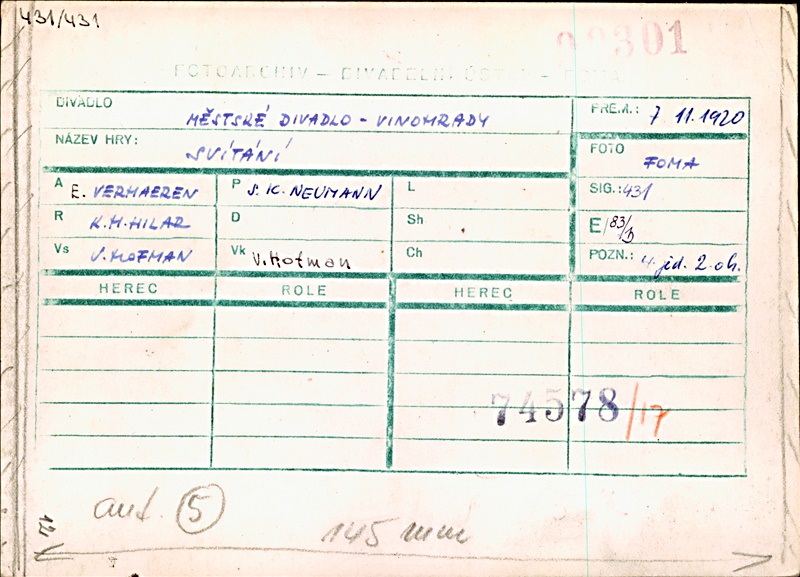 431/431
301
FOTOARCHIV – DIVADELNÍ
DIVADLO MĚSTSKÉ DIVADLO - VINOHRADY PREM.: 7 11.1920
NÁZEV HRY: SVÍTÁNÍ FOTO FOMA
A E. VERHAEREN P S. K. NEUMANN L SIG.: 431
R K.H.HILAR D Sh E/83/D
Vs V. HOFMAN Vk V. Hofman Ch POZN.: 4. jed. 2. ob.
HEREC ROLE HEREC ROLE
74578/17
ant. 5
145 mm
12